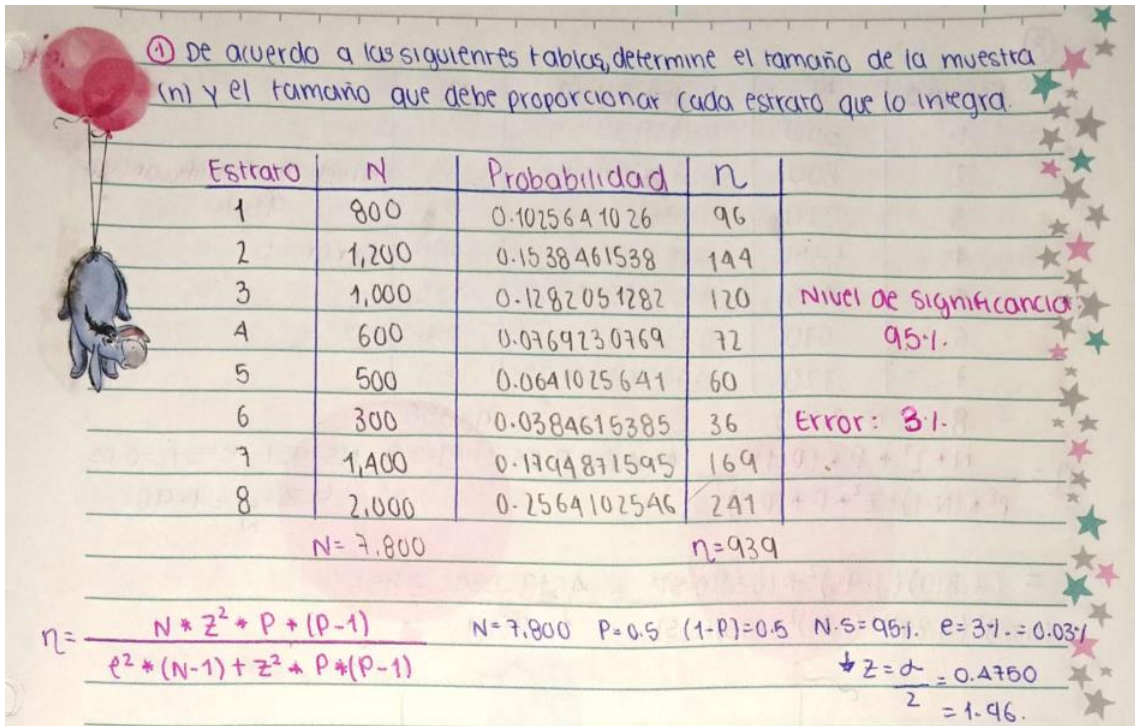 ① De acuerdo a las siguientes tablas, determine el tamaño de la muestra
(n) y el tamaño que debe proporcionar cada estrato que lo integra.
Estrato N Probabilidad n
1 800 0.1025641026 96
2 1,200 0.1538461538 144
3 1,000 0.1282051282 120 Nivel de significancia:
4 600 0.0769230769 72 95%.
5 500 0.0641025641 60
6 300 0.0384615385 36 Error: 3%.
7 1,400 0.1794871595 169
8 2,000 0.2564102546 241
N= 7,800 n=939
n= N * Z² * P * (P-1) / e² * (N-1) + Z² * P * (P-1) N=7,800 P=0.5 (1-P)=0.5 N.S=95%. e=3%.=0.03%
↓ Z = α/2 = 0.4750
= 1.96.